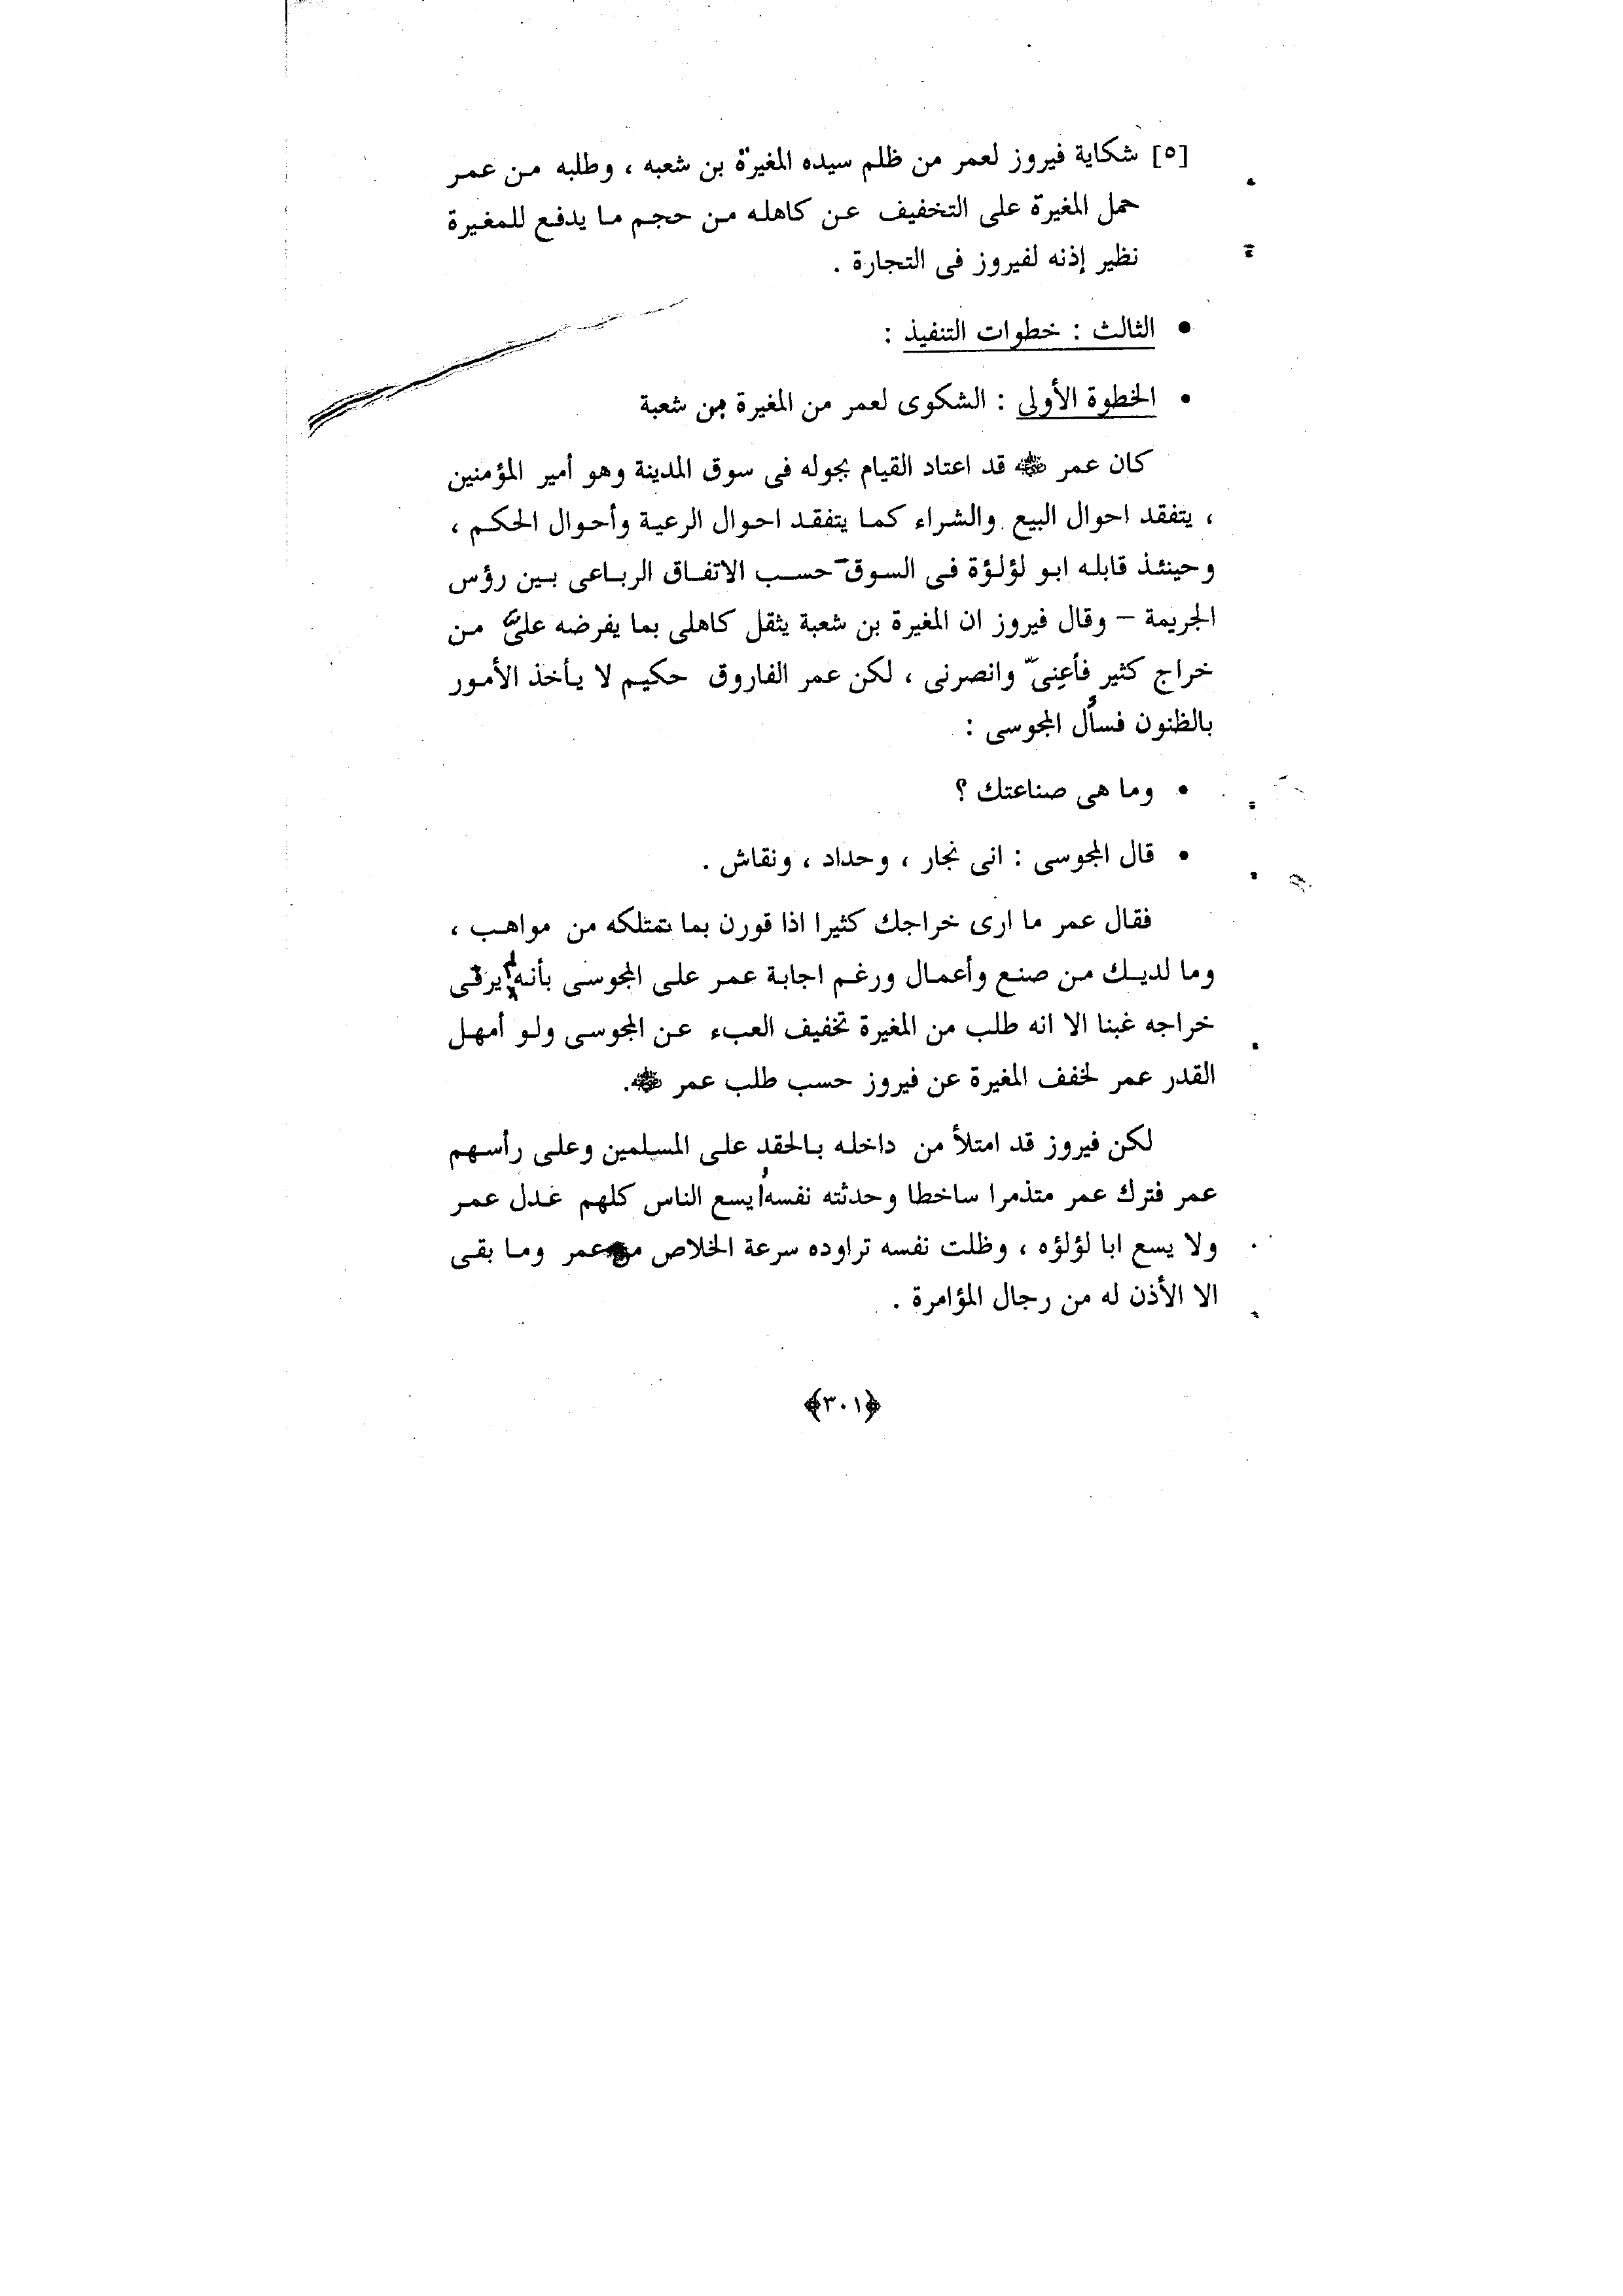 [٥] شكاية فيروز لعمر من ظلم سيده المغيرة بن شعبه ، وطلبه من عمر
حمل المغيرة على التخفيف عن كاهله من حجم ما يدفع للمغيرة
نظير إذنه لفيروز فى التجارة .
• الثالث : خطوات التنفيذ :
• الخطوة الأولى : الشكوى لعمر من المغيرة بن شعبة
كان عمر ﷺ قد اعتاد القيام بجوله فى سوق المدينة وهو أمير المؤمنين
، يتفقد احوال البيع والشراء كما يتفقد احوال الرعية وأحوال الحكم ،
وحينئذ قابله ابو لؤلؤة فى السوق – حسب الاتفاق الرباعى بين رؤس
الجريمة – وقال فيروز ان المغيرة بن شعبة يثقل كاهلى بما يفرضه علىّ من
خراج كثير فأعِنىّ وانصرنى ، لكن عمر الفاروق حكيم لا يأخذ الأمور
بالظنون فسأل المجوسى :
• وما هى صناعتك ؟
• قال المجوسى : انى نجار ، وحداد ، ونقاش .
فقال عمر ما ارى خراجك كثيرا اذا قورن بما تمتلكه من مواهب ،
وما لديك من صنع وأعمال ورغم اجابة عمر على المجوسى بأنه لم ير فى
خراجه غبنا الا انه طلب من المغيرة تخفيف العبء عن المجوسى ولو أمهل
القدر عمر لخفف المغيرة عن فيروز حسب طلب عمر ﷺ.
لكن فيروز قد امتلأ من داخله بالحقد على المسلمين وعلى رأسهم
عمر فترك عمر متذمرا ساخطا وحدثته نفسه أيسع الناس كلهم عدل عمر
ولا يسع ابا لؤلؤه ، وظلت نفسه تراوده سرعة الخلاص من عمر وما بقى
الا الأذن له من رجال المؤامرة .
﴿٣٠١﴾